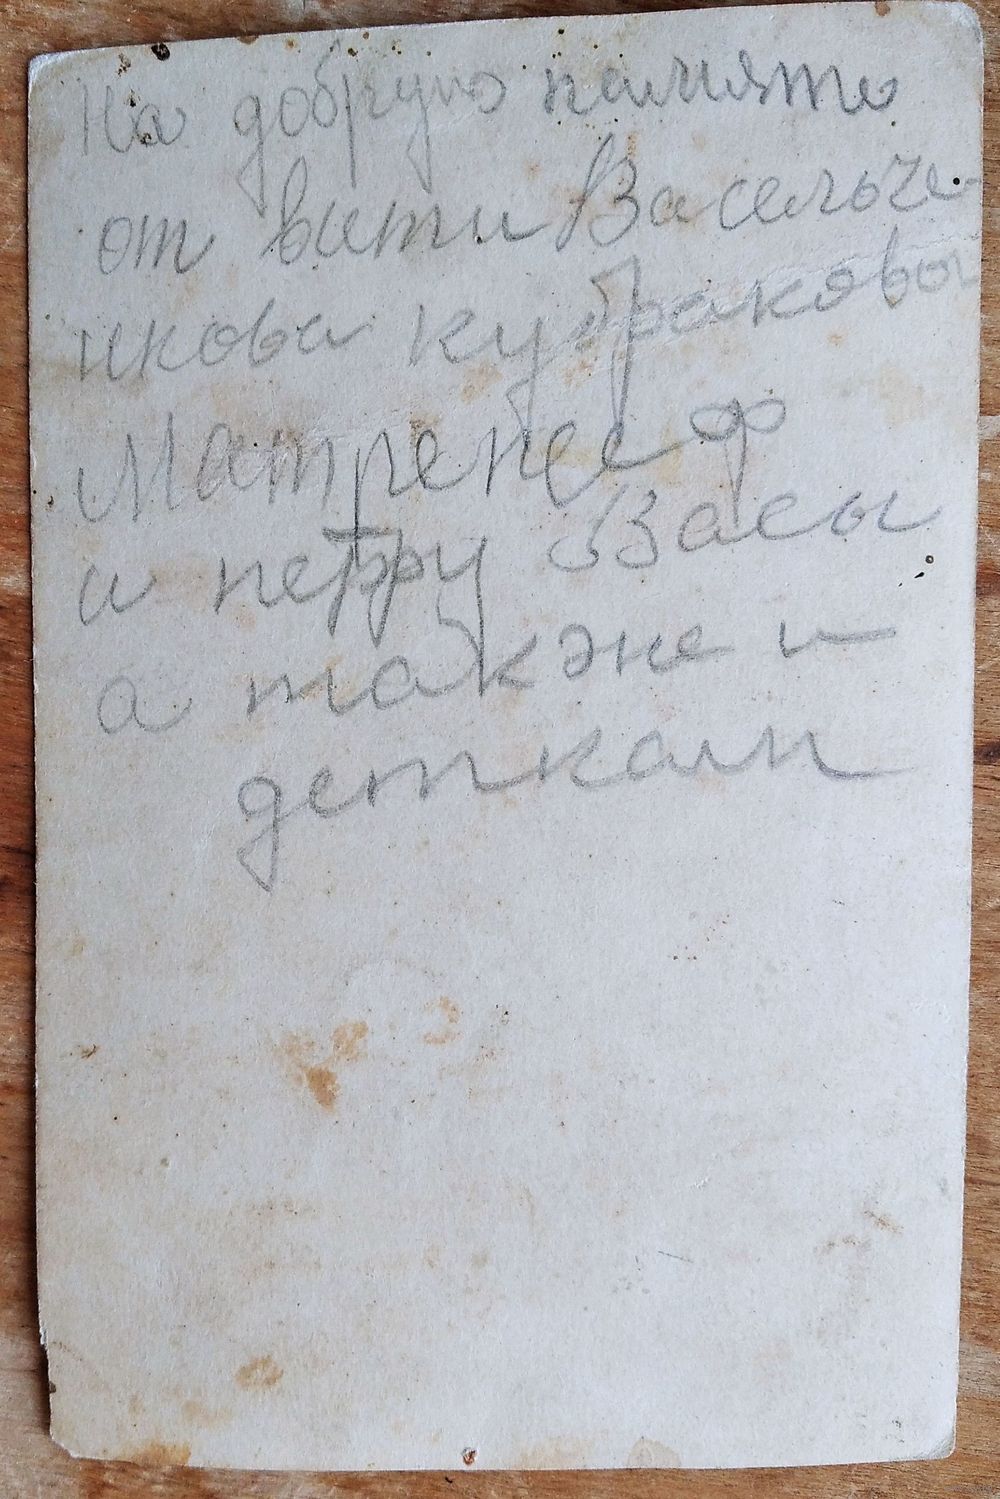 На добрую память
от вити Васельче-
икова кудраковой
Матренее Ф
и петру Васы
а также и
деткам